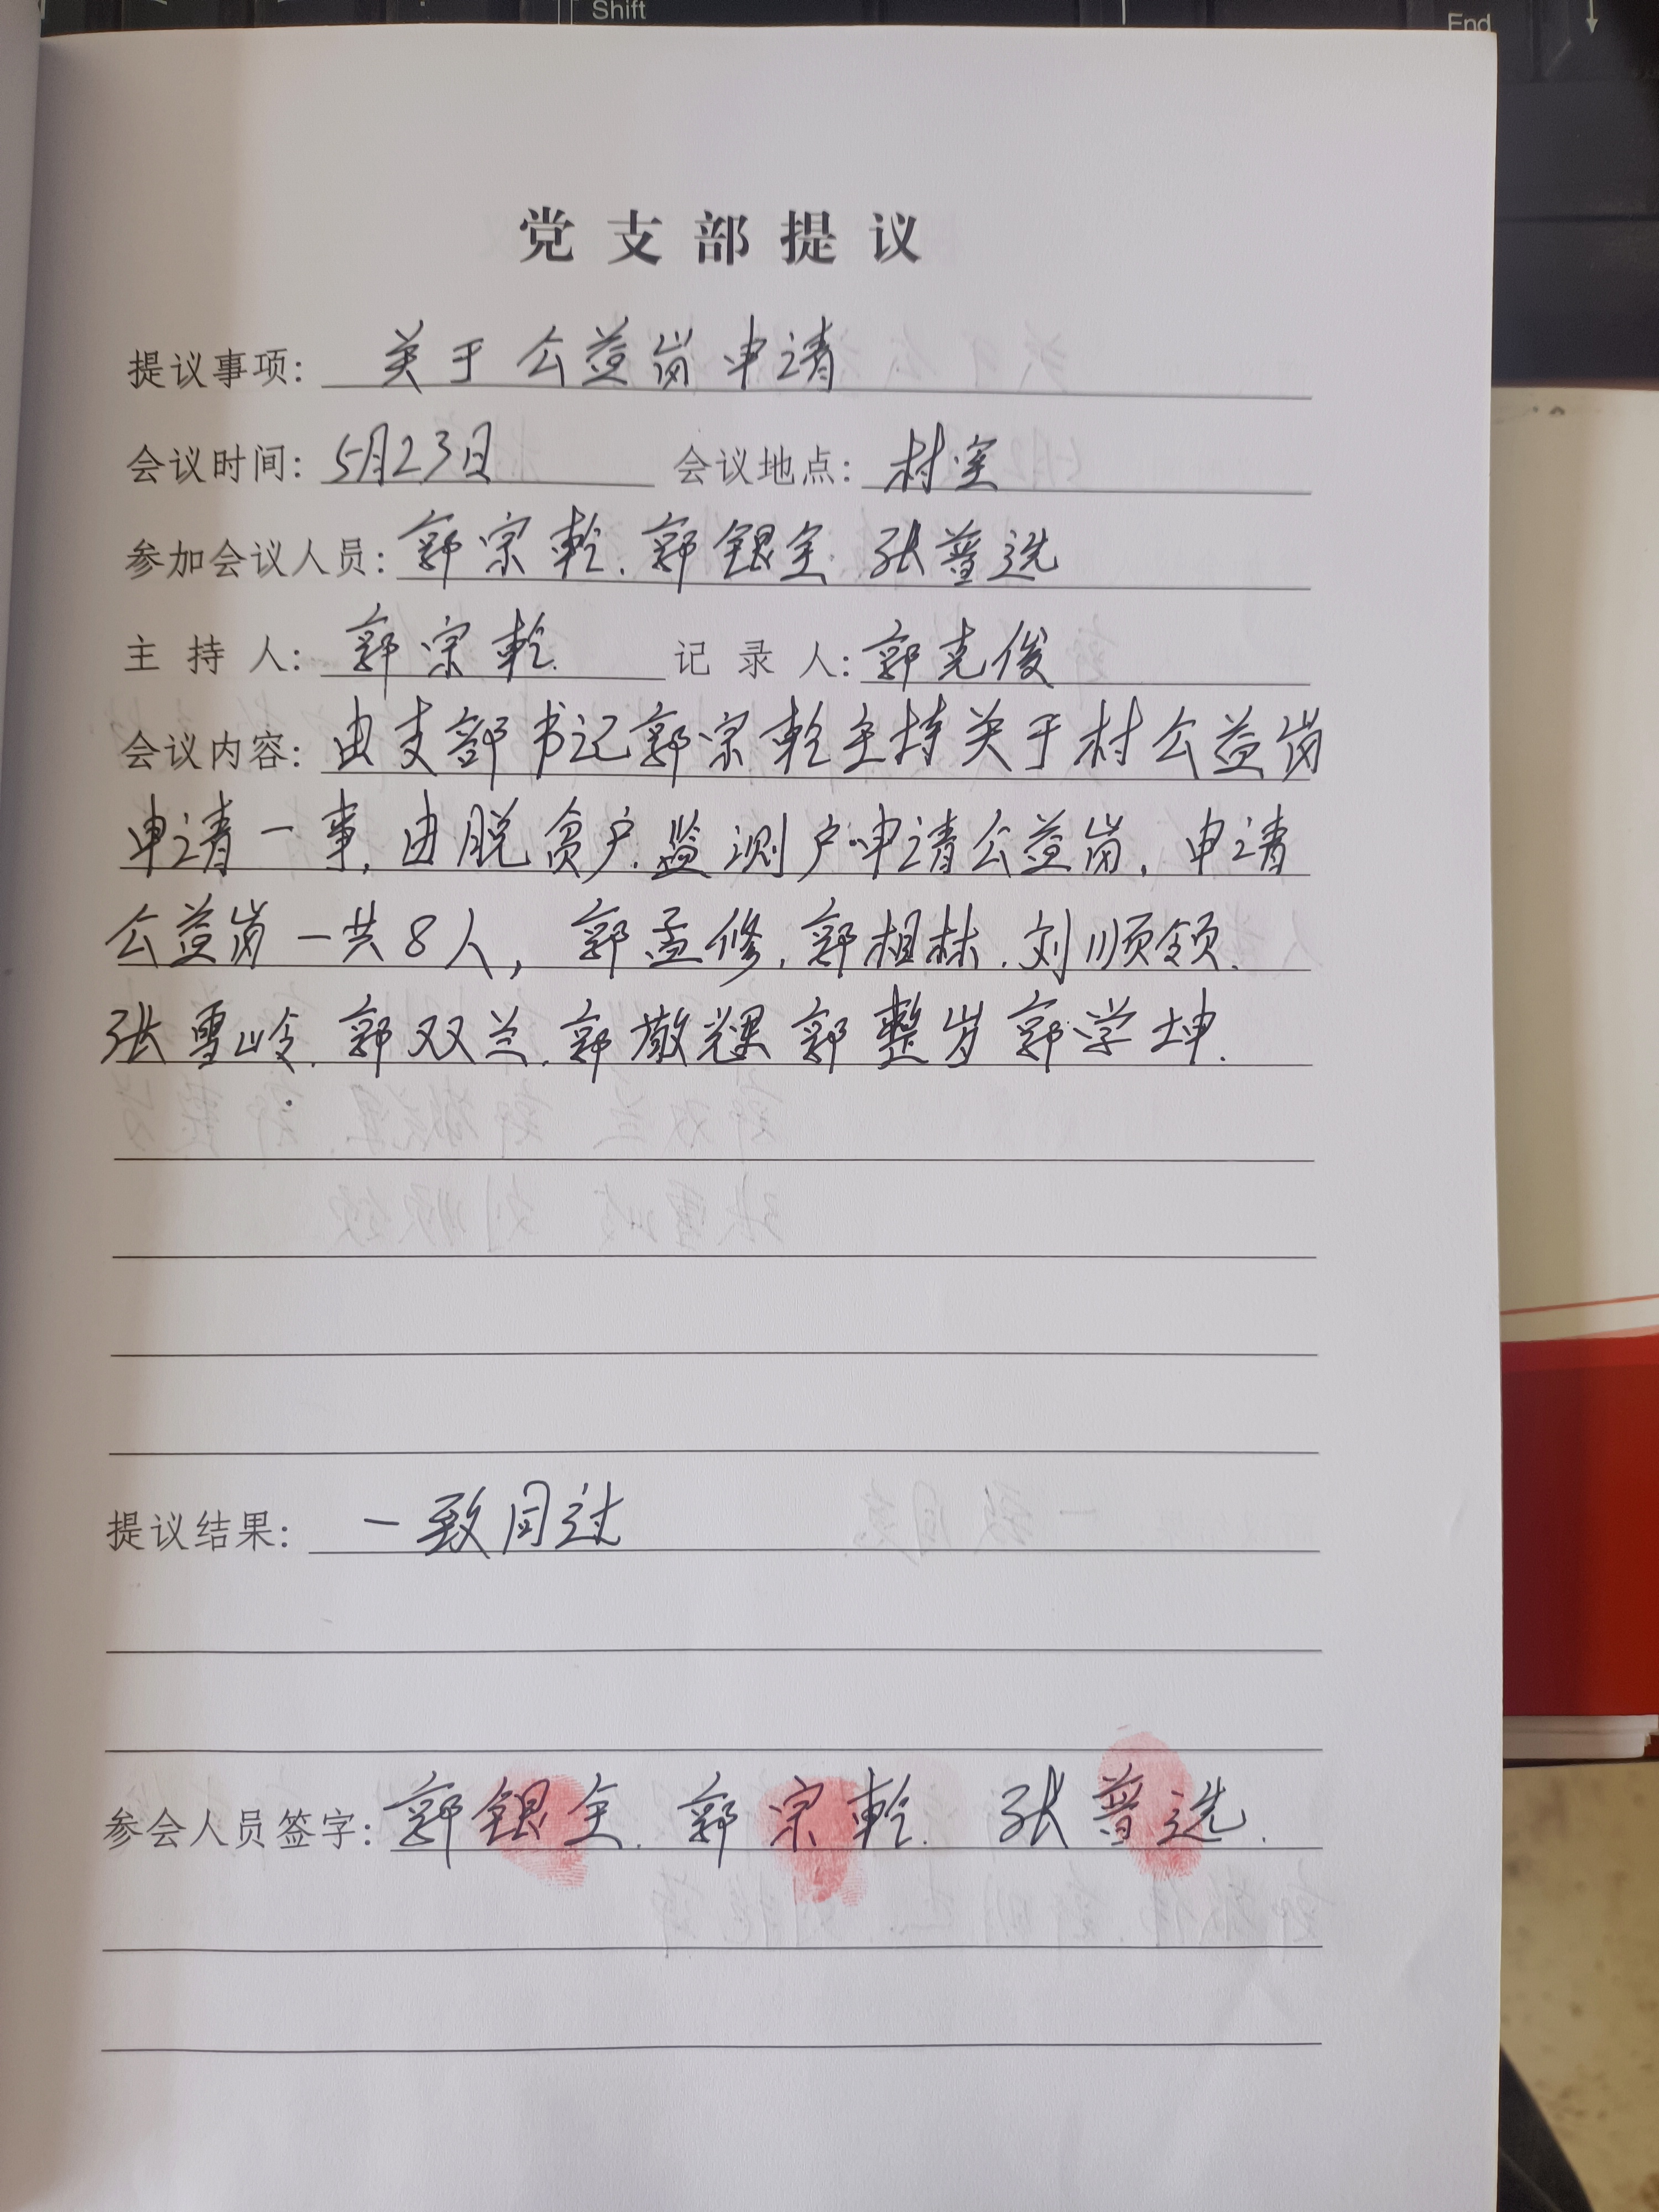 Shift
End
党支部提议
提议事项: 关于公益岗申请
会议时间: 5月23日 会议地点: 村室
参加会议人员: 郭宗乾.郭银全.张普选
主持人: 郭宗乾. 记录人: 郭克俊
会议内容: 由支部书记郭宗乾主持关于村公益岗
申请一事,由脱贫户.监测户申请公益岗,申请
公益岗一共8人,郭孟修.郭相林.刘顺领.
张雪岭.郭双兰.郭敬 郭整岁 郭学坤.
提议结果: 一致同过
参会人员签字: 郭银全.郭宗乾. 张普选.